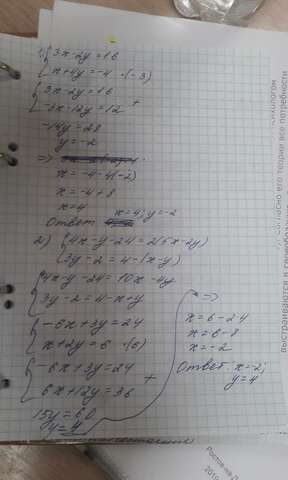 1) { 3x-2y=16
x+4y=-4 ·(-3)
{ 3x-2y=16
-3x-12y=12 +
-14y=28
y=-2
=>
x=-4-4(-2)
x=-4+8
x=4
Ответ x=4; y=-2
2) { 4x-y-24=2(5x-2y)
3y-2=4-(x-y)
{ 4x-y-24=10x-4y
3y-2=4-x+y
{ -6x+3y=24
x+2y=6 ·(6)
{ -6x+3y=24
6x+12y=36 +
15y=60
y=4
=>
x=6-24
x=6-8
x=-2
Ответ x=-2;
y=4
согласно его теории все потребности
выстраиваются в